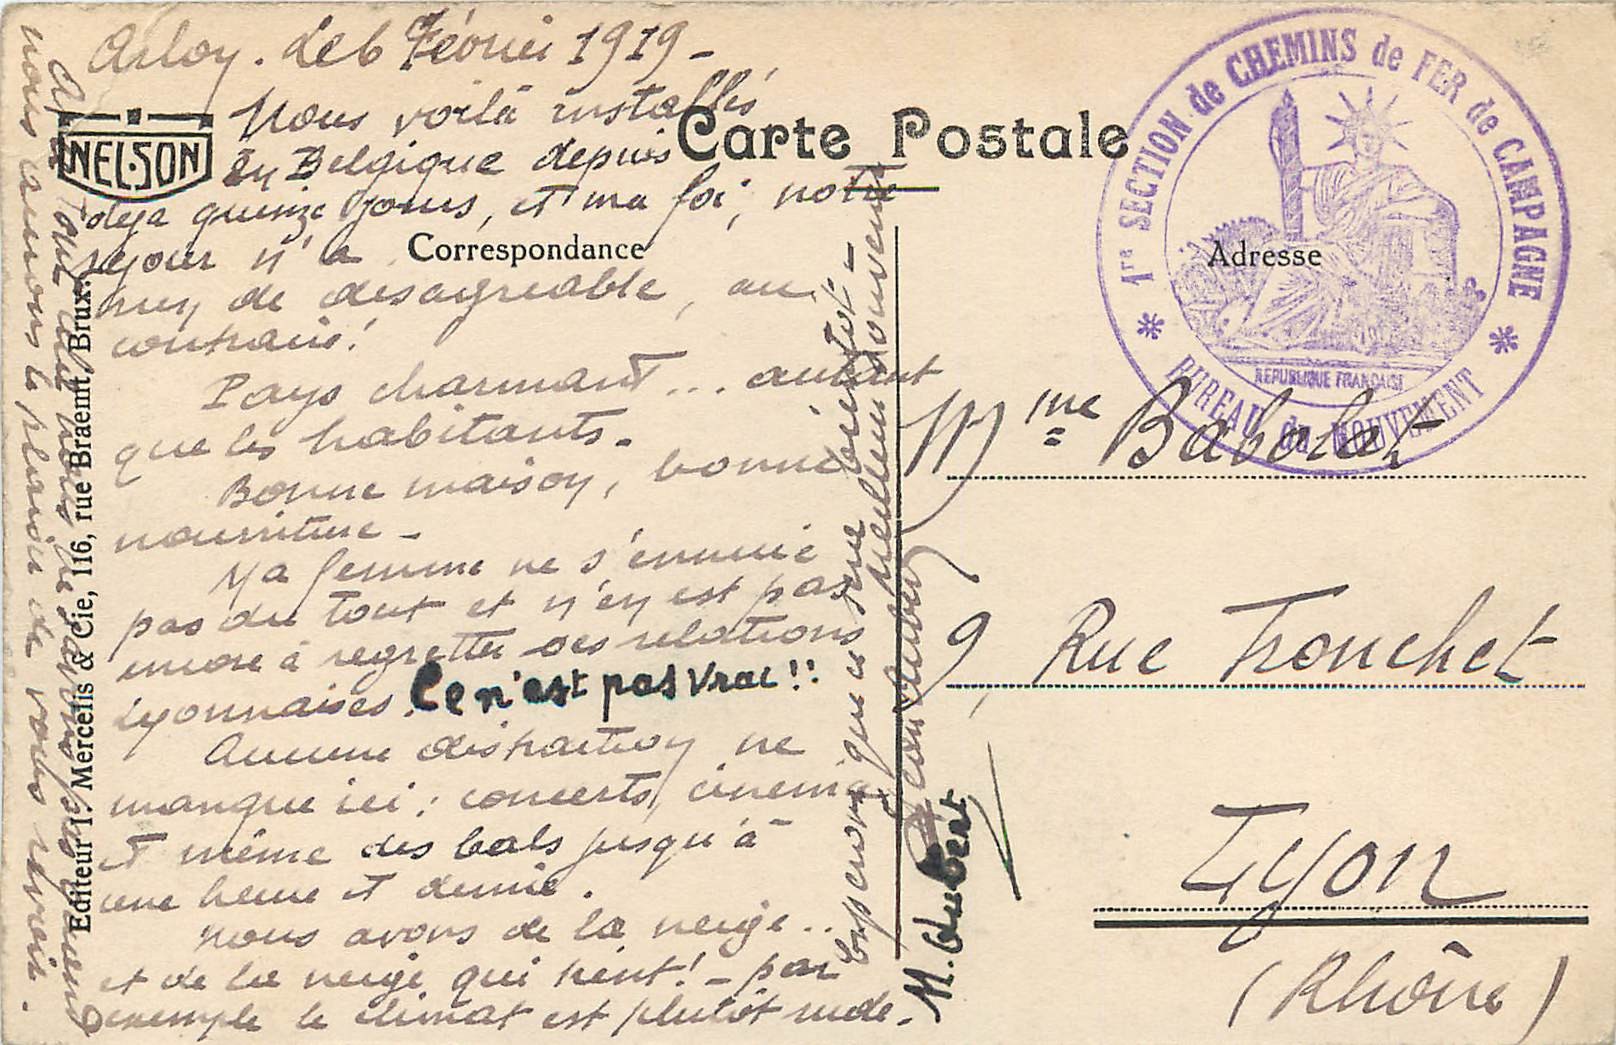 Arlon. Le 6 Février 1919 -
Nous voilà installés
en Belgique depuis
déjà quinze jours, et ma foi, notre
séjour n'a
rien de désagréable, au
contraire!
Pays charmant... autant
que les habitants.
Bonne maison, bonne
nourriture -
Ma femme ne s'ennuie
pas du tout et n'en est pas
encore à regretter ses relations
Lyonnaises. Ce n'est pas vrai!!
Aucune distraction ne
manque ici : concerts, cinéma
et même des bals jusqu'à
une heure et demie.
Nous avons de la neige..
et de la neige qui tient! - par
exemple le climat est plutôt rude.
nous aurons le plaisir de vous revoir.
Espérons que ce sera bientôt -
Meilleur souvenir
Jean Aubert
M. Aubert
NELSON
Editeur I. Mercelis & Cie, 116, rue Braemt Brux.
Carte Postale
Correspondance
Adresse
1re SECTION de CHEMINS de FER de CAMPAGNE
REPUBLIQUE FRANCAISE
BUREAU du MOUVEMENT
Mme Babolat
9, Rue Tronchet
Lyon
(Rhône)